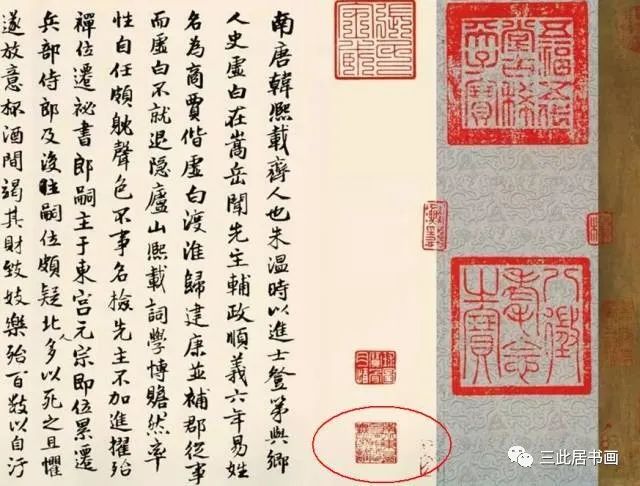 五福五代堂古稀天子寶
八徵耄念之寶
南唐韓熙載齊人也朱温時以進士登第與鄉
人史虛白在嵩岳聞先主輔政順義六年易姓
名為商賈偕虛白渡淮歸建康並補郡從事
而虛白不就退隱廬山熙載詞學博贍然率
性自任頗躭聲色不事名檢先主不加進擢殆
禪位遷祕書郎嗣主于東宮元宗即位累遷
兵部侍郎及後主嗣位頗疑北人多以死之且懼
遂放意杯酒間竭其財致妓樂殆百數以自汙
三此居书画